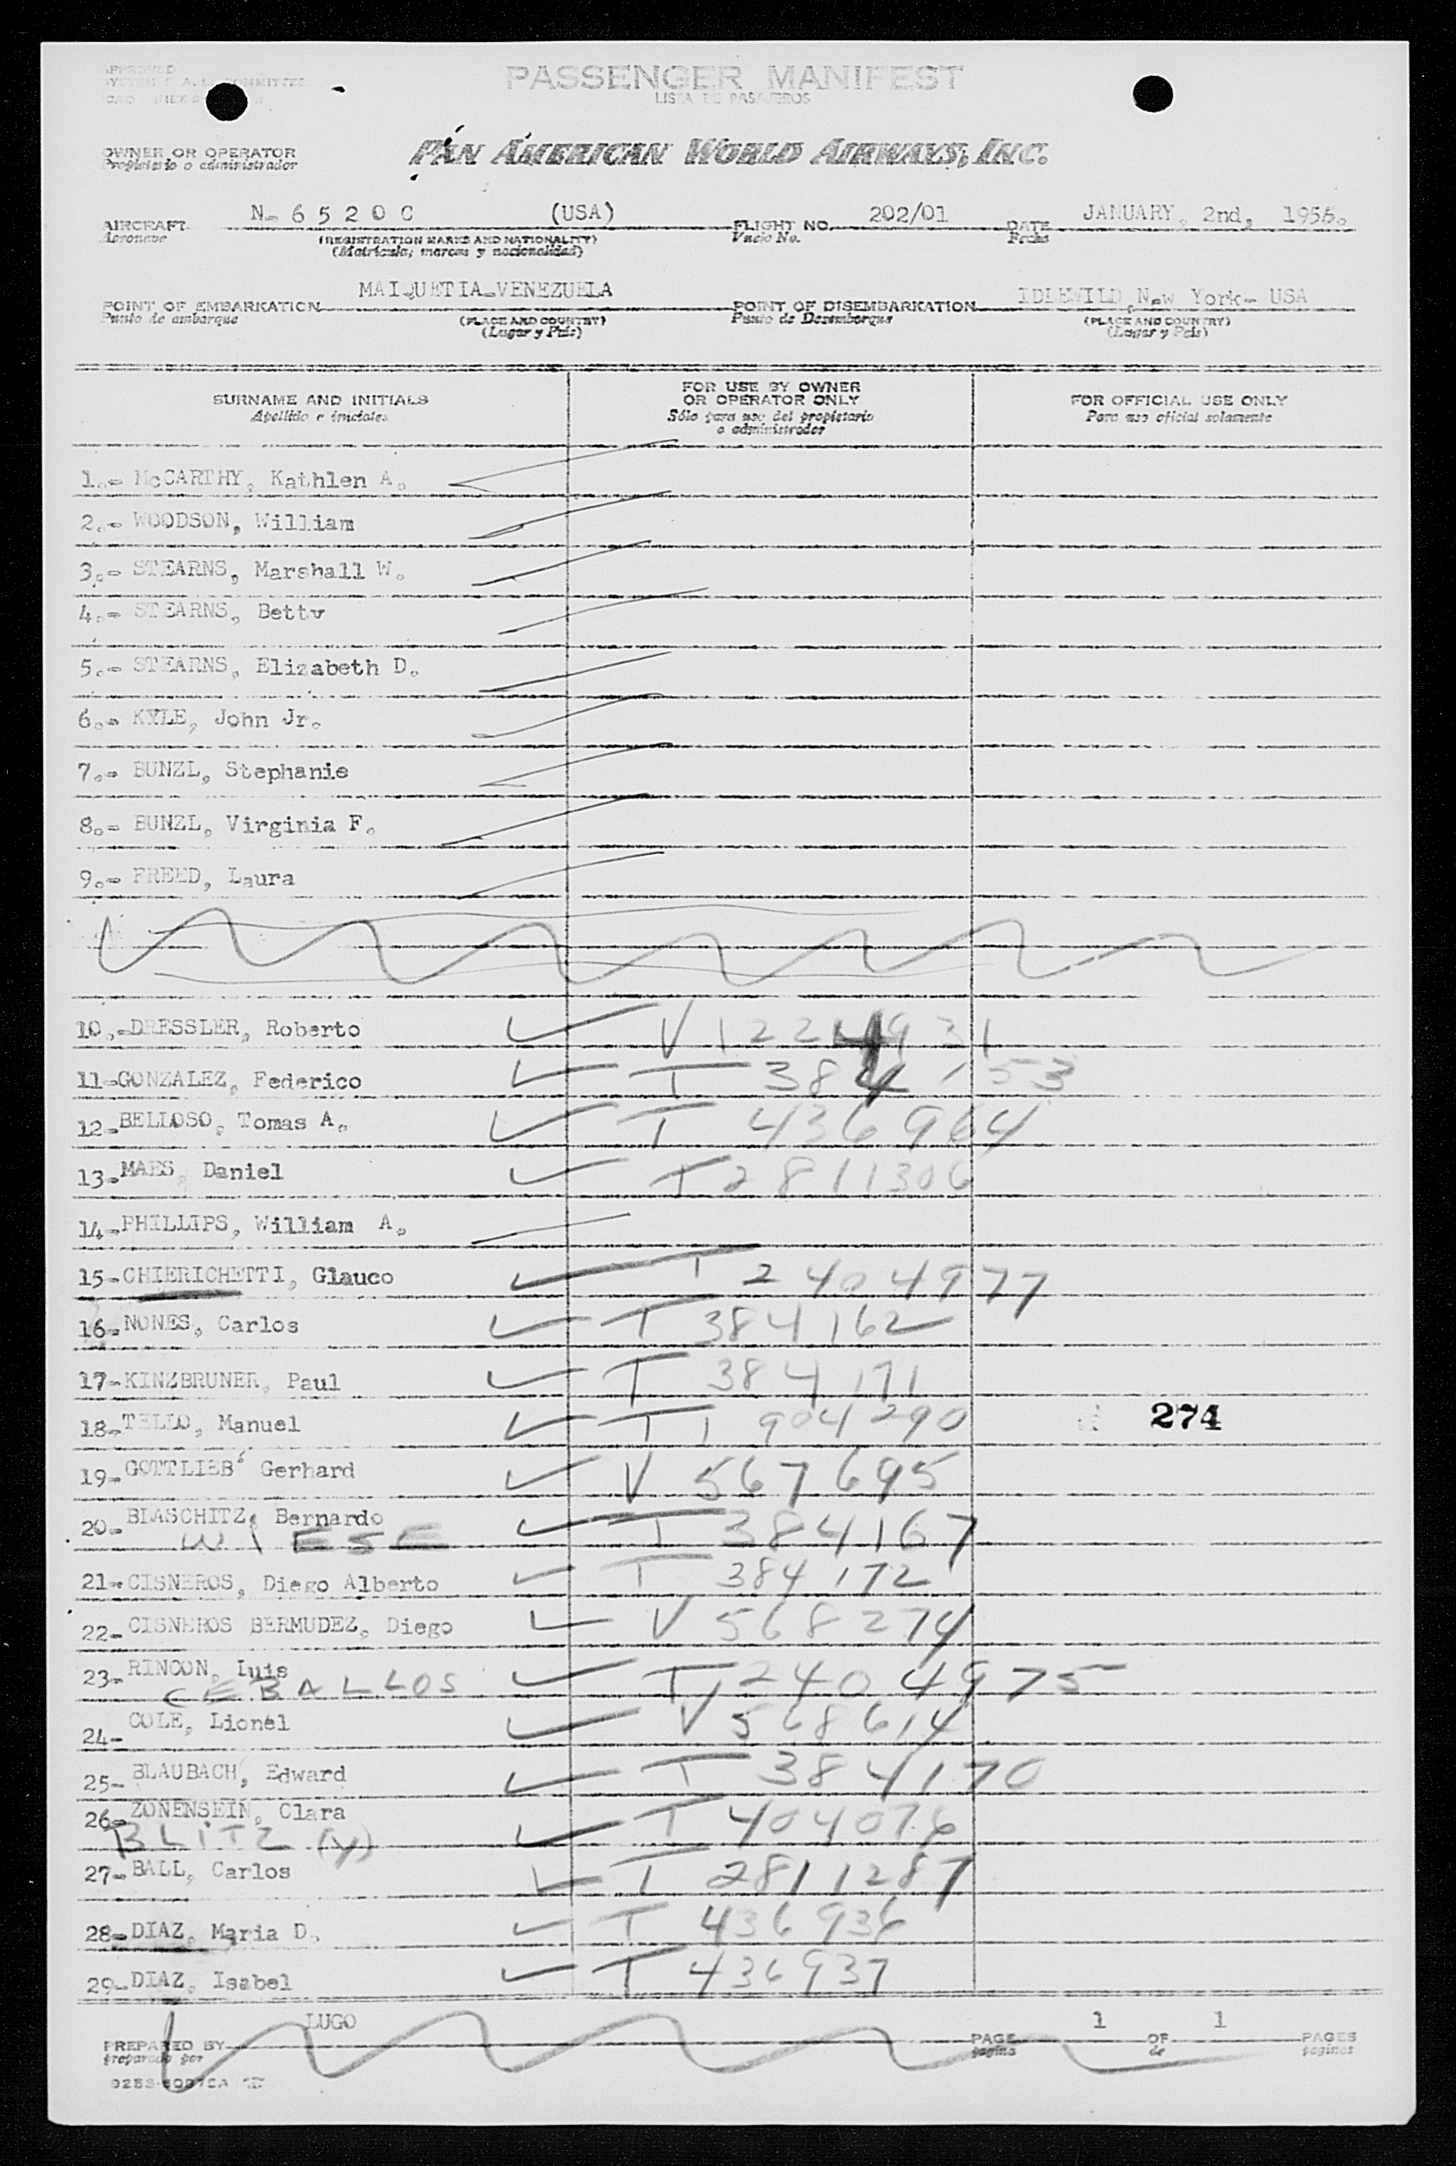 APPROVED
COMMITTEE
PASSENGER MANIFEST
LISTA DE PASAJEROS
OWNER OR OPERATOR
Propietario o administrador
PAN AMERICAN WORLD AIRWAYS, INC.
AIRCRAFT N- 6 5 2 0 C (USA) FLIGHT NO. 202/01 DATE JANUARY, 2nd, 1956.
Aeronave (REGISTRATION MARKS AND NATIONALITY) Vuelo No. Fecha
(Matrícula, marcas y nacionalidad)
POINT OF EMBARKATION MAIQUETIA-VENEZUELA POINT OF DISEMBARKATION IDLEWILD, New York- USA
Punto de embarque (PLACE AND COUNTRY) Punto de Desembarque (PLACE AND COUNTRY)
(Lugar y País) (Lugar y País)
SURNAME AND INITIALS
Apellido e iniciales
FOR USE BY OWNER
OR OPERATOR ONLY
Sólo para uso del propietario
o administrador
FOR OFFICIAL USE ONLY
Para uso oficial solamente
1.- McCARTHY, Kathlen A.
2.- WOODSON, William
3.- STEARNS, Marshall W.
4.- STEARNS, Betty
5.- STEARNS, Elizabeth D.
6.- KYLE, John Jr.
7.- BUNZL, Stephanie
8.- BUNZL, Virginia F.
9.- FREED, Laura
10.-DRESSLER, Roberto V 1224931
11-GONZALEZ, Federico T 384153
12-BELLOSO, Tomas A. T 436964
13-MAES, Daniel T 2811306
14-PHILLIPS, William A.
15-CHIERICHETTI, Glauco T 2404977
16-NONES, Carlos T 384162
17-KINZBRUNER, Paul T 384171
18-TELLO, Manuel T 1904290 274
19-GOTTLIEB' Gerhard V 567695
20-BLASCHITZ, Bernardo T 384167
WIESE
21-CISNEROS, Diego Alberto T 384172
22-CISNEROS BERMUDEZ, Diego V 568274
23-RINCON, Luis T 2404975
CEBALLOS
24- COLE, Lionel V 568614
25- BLAUBACH, Edward T 384170
26-ZONENSEIN, Clara T 404076
BLITZ (Y)
27-BALL, Carlos T 2811287
28-DIAZ, Maria D. T 436936
29-DIAZ, Isabel T 436937
PREPARED BY LUGO PAGE 1 OF 1 PAGES
preparado por página de páginas